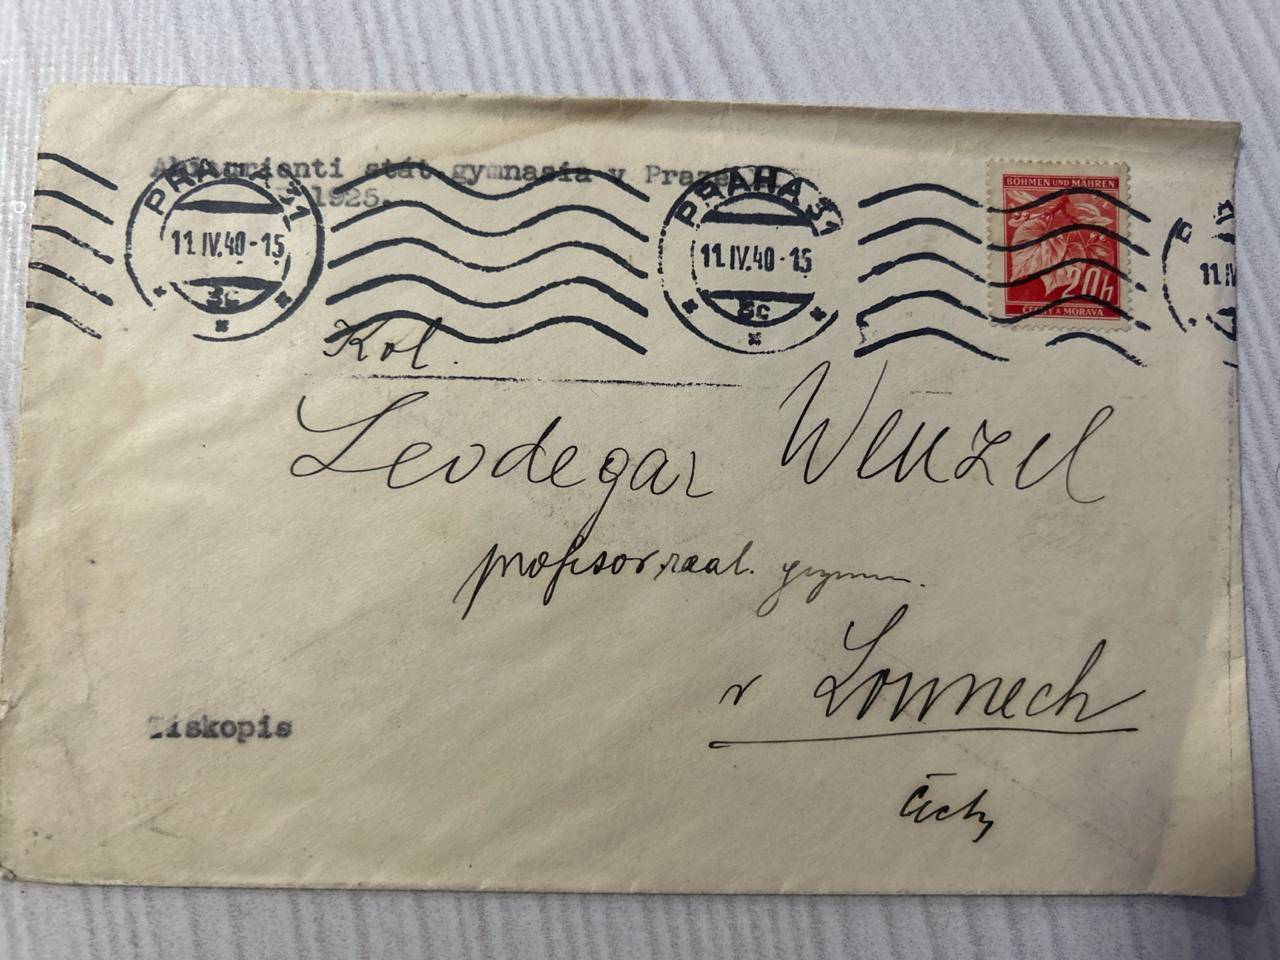 Abiturienti stát.gymnasia v Praze
1925.
PRAHA 31
11.IV.40-15
3c
PRAHA 31
11.IV.40-15
3c
BÖHMEN UND MÄHREN
20h
ČECHY A MORAVA
11.IV
Kol.
Leodegar Wenzel
profesor real. gymn.
v Lounech
Čechy
Tiskopis